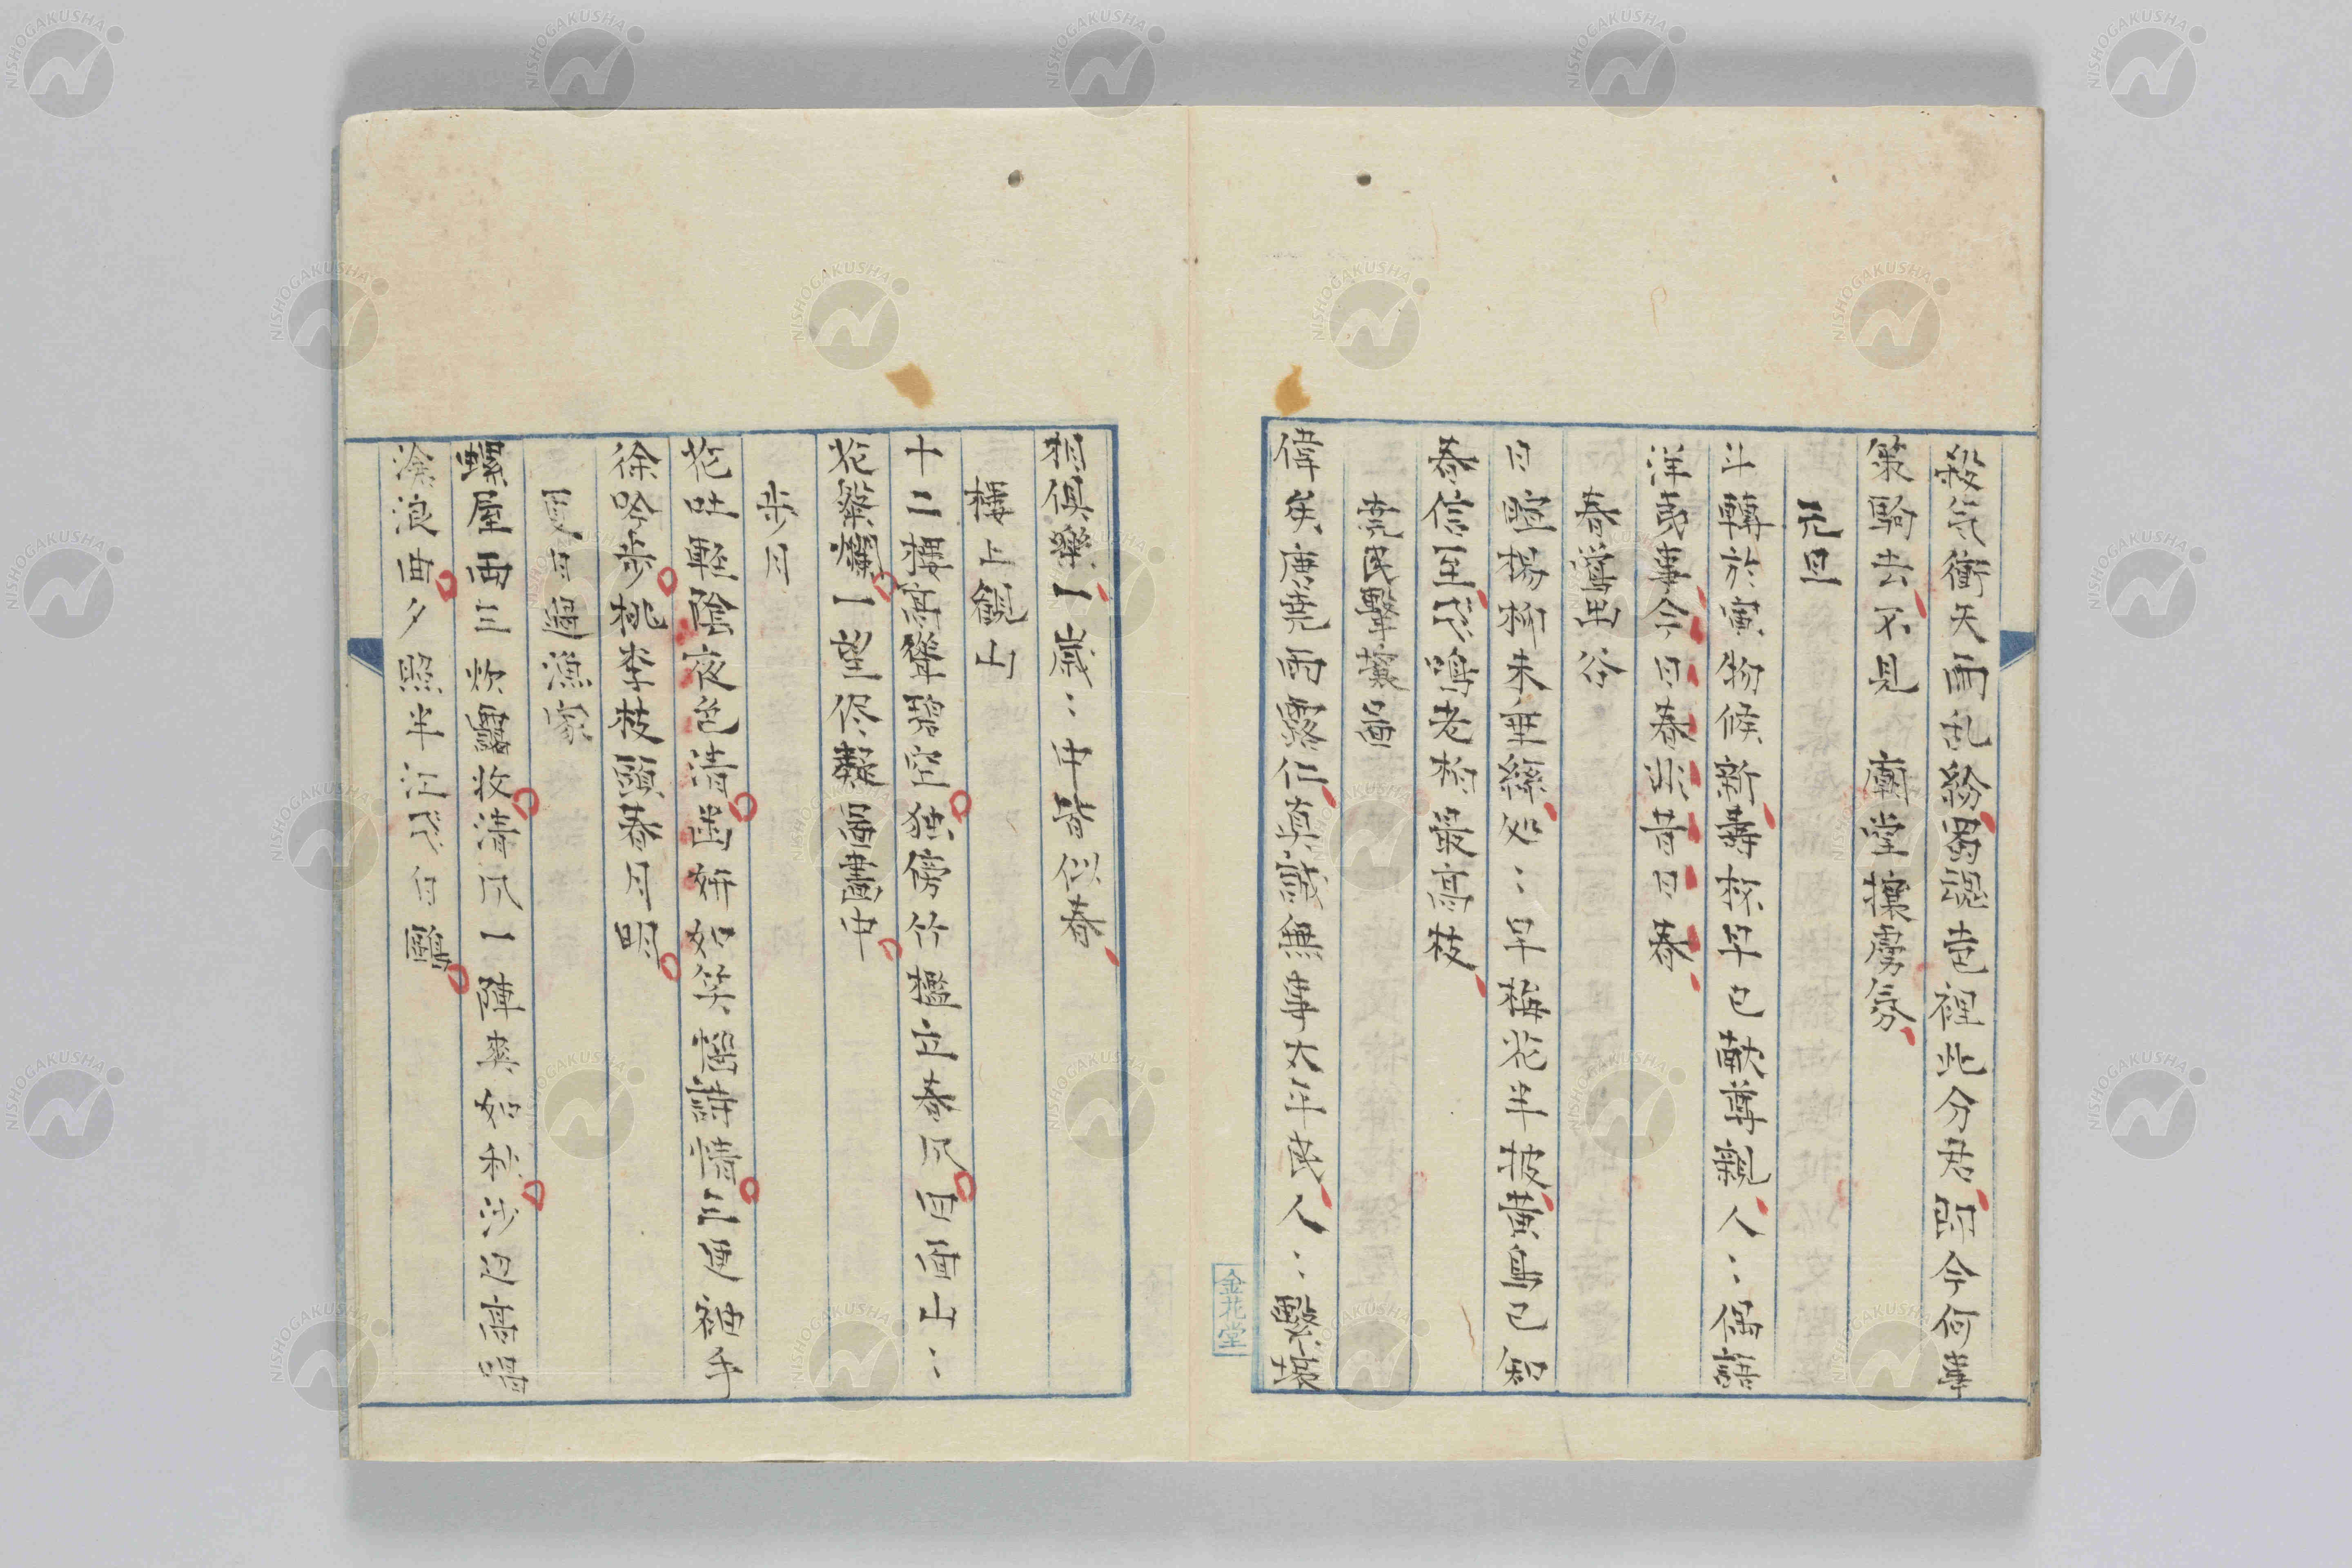 殺氣衝天雨乱紛蜀漢豈在此分明即今何事
策駒去不見 廟堂攘虜勞
元旦
斗轉於寅物候新壽杯早已獻尊親人〻偏請
洋夷事今日春非昔日春
春鶯出谷
日喧楊柳未垂絲処〻早梅花半披黄鳥已知
春信至飛鳴老樹最高枝
堯民擊壤圖
偉矣唐堯雨露仁真識無事太平民人〻擊壤
相俱樂一歳〻中皆似春
樓上観山
十二樓高聳碧空独傍竹檻立春風自面山〻
花粲爛一望侭疑畫圖中
歩月
花吐軽陰夜色清幽妍如笑惱詩情三更袖手
徐吟歩桃李枝頭春月明
夏日過漁家
螺屋両三炊靄收清風一陣爽如秋沙辺高唱
滄浪曲夕照半江飛白鷗
金花堂
NISHOGAKUSHA